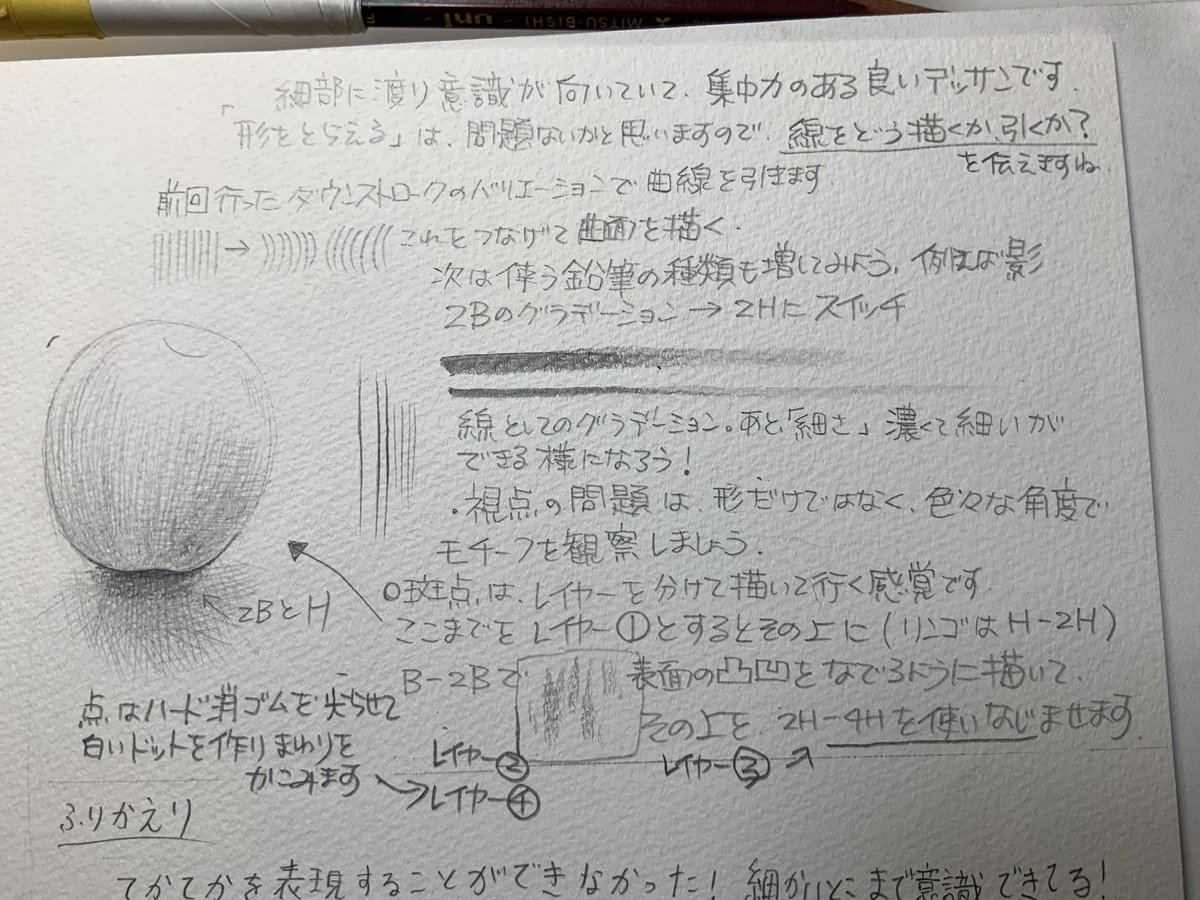 uni MITSU-BISHI
細部に渡り意識が向いていて、集中力のある良いデッサンです.
「形をとらえる」は、問題ないかと思いますので、線をどう描くか引くか?
を伝えますね
前回行ったダウンストロークのバリエーションで曲線を引きます.
→ これをつなげて曲面を描く.
次は使う鉛筆の種類も増してみよう、例えば影
2Bのグラデーション→2Hにスイッチ
線としてのグラデーション。あと「細さ」濃くて細いが
できる様になろう!
・視点の問題は、形だけではなく、色々な角度で
モチーフを観察しましょう.
○斑点は、レイヤーを分けて描いて行く感覚です
ここまでをレイヤー①とするとその上に(リンゴはH-2H)
2BとH
B-2Bで 表面の凸凹をなでるように描いて、
その上を、2H-4Hを使いなじませます
レイヤー②
レイヤー③
点はハード消ゴムを尖らせて
白いドットを作りまわりを
かこみます
→レイヤー④
ふりかえり
てかてかを表現することができなかった!細かいとこまで意識できてる!